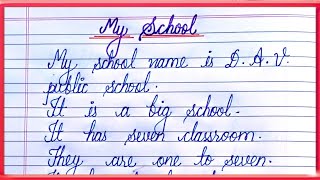 My School
My school name is D.A.V.
public school.
It is a big school.
It has seven classroom.
They are one to seven.